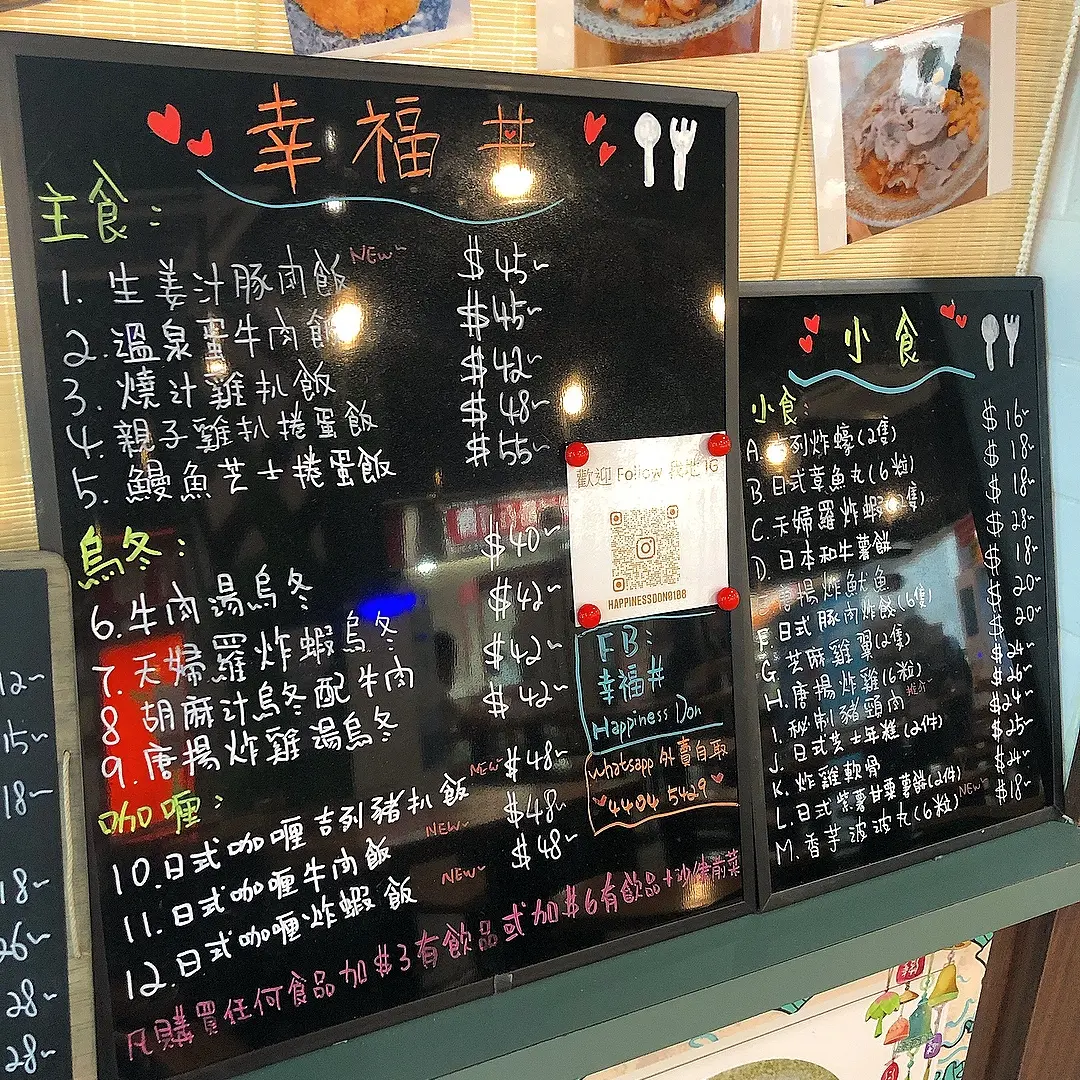 幸福丼
主食：
1. 生姜汁豚肉飯 NEW~ $45~
2. 溫泉蛋牛肉飯 $45~
3. 燒汁雞扒飯 $42~
4. 親子雞扒捲蛋飯 $48~
5. 鰻魚芝士捲蛋飯 $55~
烏冬：
6. 牛肉湯烏冬 $40~
7. 天婦羅炸蝦烏冬 $42~
8 胡麻汁烏冬配牛肉 $42~
9. 唐揚炸雞湯烏冬 $42~
咖喱：
10. 日式咖喱吉列豬扒飯 NEW~ $48~
11. 日式咖喱牛肉飯 NEW~ $48~
12. 日式咖喱炸蝦飯 NEW~ $48~
凡購買任何食品加$3有飲品或加$6有飲品+沙律前菜
歡迎 Follow 我地 IG
HAPPINESSDON8188
FB:
幸福丼
Happiness Don
Whatsapp 外賣自取
4404 5429
小食
小食：
A. 列炸蠔(2隻) $16~
B. 日式章魚丸(6粒) $18~
C. 天婦羅炸蝦 隻) $18~
D. 日本和牛薯餅 $28~
唐揚炸魷魚 $18~
F. 日式豚肉炸餃(6隻) $20~
G. 芝麻雞翼(2隻) $20~
H. 唐揚炸雞(6粒) $24~
I. 秘制豬頸肉 推介 $26~
J. 日式芝士年糕(2件) $24~
K. 炸雞軟骨 $25~
L. 日式紫薯甘栗薯餅(2件) $24~
M. 香芋波波丸(6粒) NEW~ $18~
12~
15~
18~
18~
26~
28~
28~